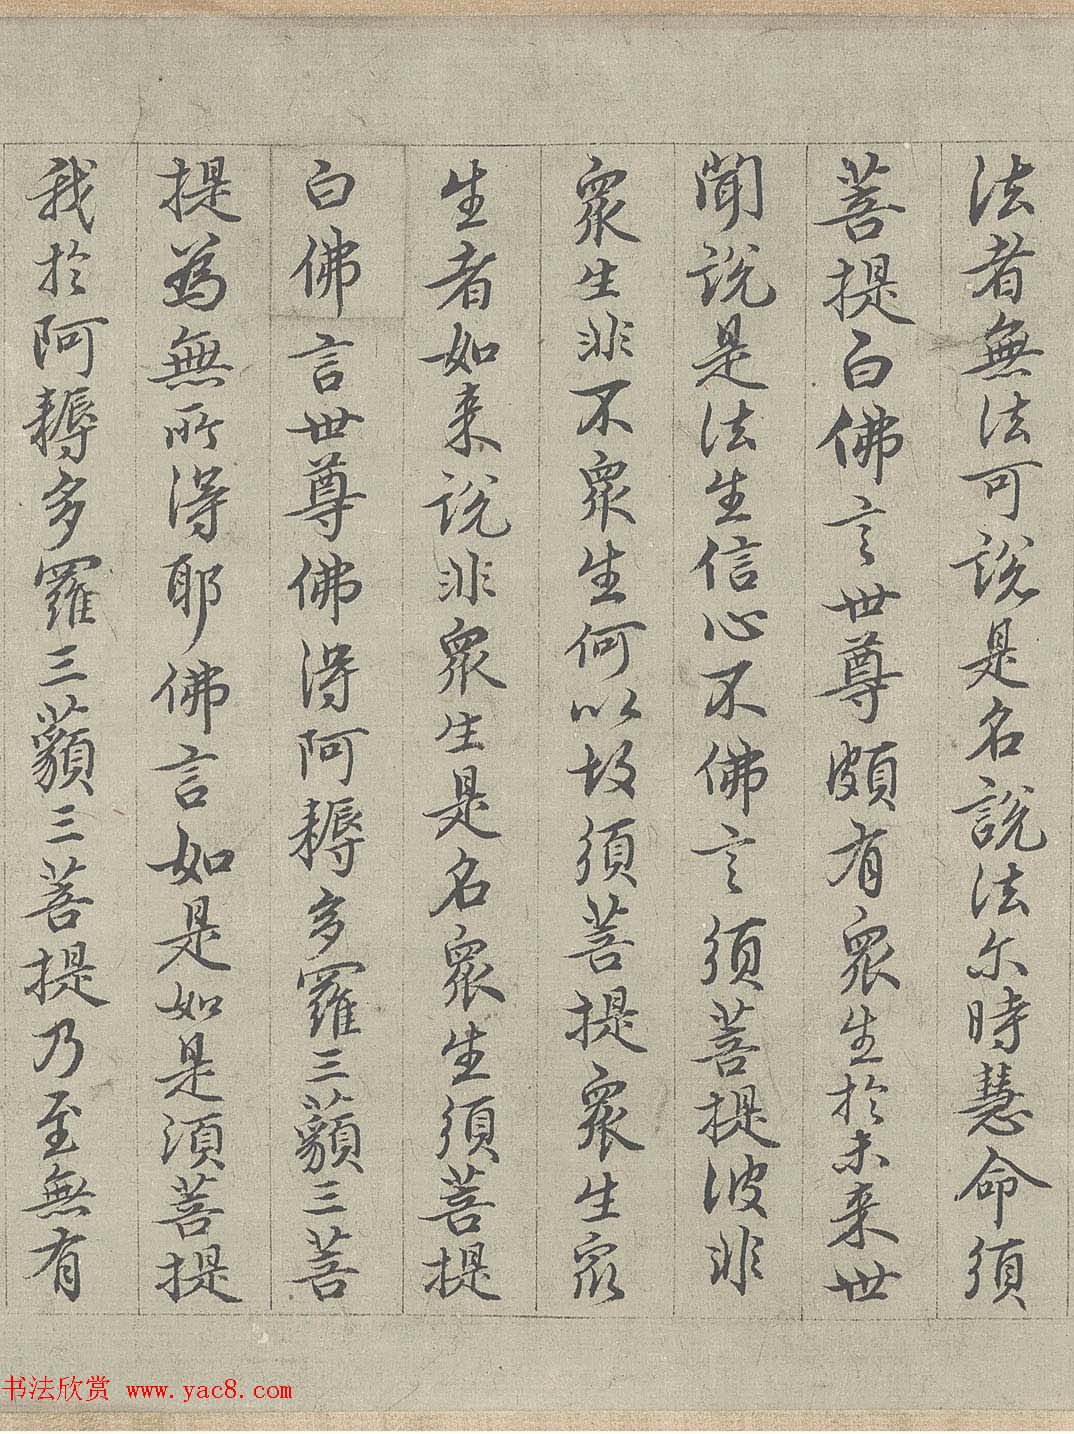 法者無法可說是名說法尒時慧命須
菩提白佛言世尊頗有眾生於未来世
聞說是法生信心不佛言須菩提彼非
眾生非不眾生何以故須菩提眾生眾
生者如来說非眾生是名眾生須菩提
白佛言世尊佛得阿耨多羅三藐三菩
提為無所得耶佛言如是如是須菩提
我於阿耨多羅三藐三菩提乃至無有
书法欣赏 www.yac8.com